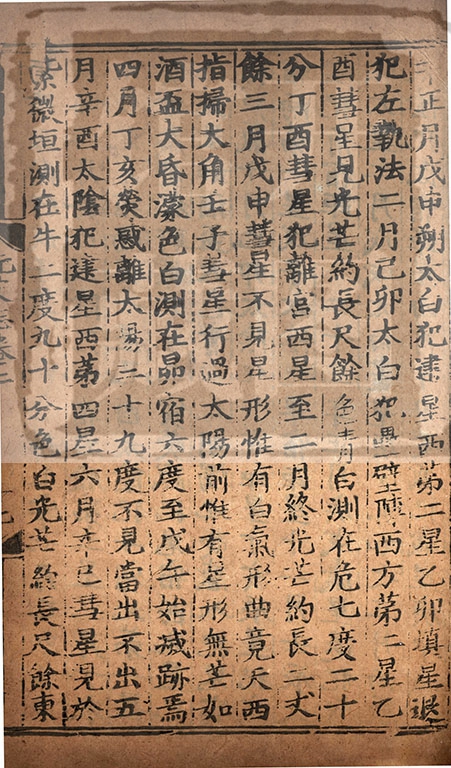 年正月戊申朔太白犯建星西第二星乙卯填星退
犯左執法二月己卯太白犯壘壁陣西方第二星乙
酉彗星見光芒約長尺餘色青白測在危七度二十
分丁酉彗星犯離宮西星至二月終光芒約長二丈
餘三月戊申彗星不見星形惟有白氣形曲竟天西
指掃大角壬子彗星行過太陽前惟有星形無芒如
酒盃大昏濛色白測在昴宿六度至戊午始滅跡焉
四月丁亥熒惑離太陽三十九度不見當出不出五
月辛酉太陰犯建星西第四星六月辛巳彗星見於
紫微垣測在牛二度九十分色白光芒約長尺餘東